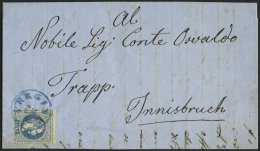 Al
Nobile Sig: Conte Oswaldo
Trapp.
Innisbruch